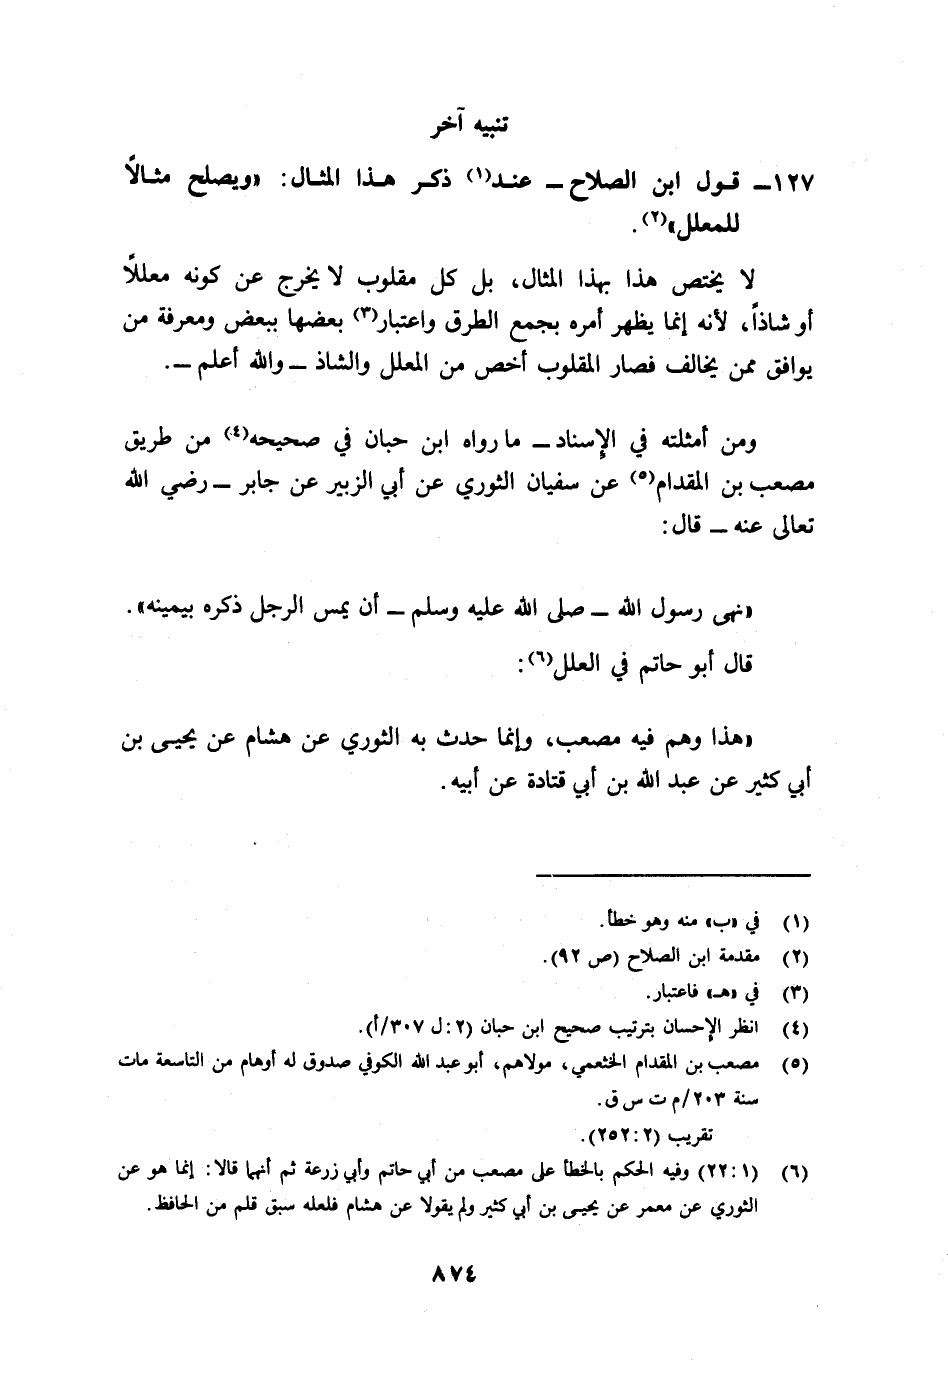 تنبيه آخر
١٢٧ـ قـول ابن الصلاح ـ عنـد(١) ذكـر هـذا المثـال: «ويصلح مثـالاً
للمعلل»(٢).
لا يختص هذا بهذا المثال، بل كل مقلوب لا يخرج عن كونه معللاً
أو شاذاً، لأنه إنما يظهر أمره بجمع الطرق واعتبار(٣) بعضها ببعض ومعرفة من
يوافق ممن يخالف فصار المقلوب أخص من المعلل والشاذ ـ والله أعلم ـ.
ومن أمثلته في الإسناد ـ ما رواه ابن حبان في صحيحه(٤) من طريق
مصعب بن المقدام(٥) عن سفيان الثوري عن أبي الزبير عن جابر ـ رضي الله
تعالى عنه ـ قال:
«نهى رسول الله ـ صلى الله عليه وسلم ـ أن يمس الرجل ذكره بيمينه».
قال أبو حاتم في العلل(٦):
«هذا وهم فيه مصعب، وإنما حدث به الثوري عن هشام عن يحيـى بن
أبي كثير عن عبد الله بن أبي قتادة عن أبيه.
(١) في «ب» منه وهو خطأ.
(٢) مقدمة ابن الصلاح (ص ٩٢).
(٣) في «هـ» فاعتبار.
(٤) انظر الإحسان بترتيب صحيح ابن حبان (٢: ل ٣٠٧/أ).
(٥) مصعب بن المقدام الخثعمي، مولاهم، أبو عبد الله الكوفي صدوق له أوهام من التاسعة مات
سنة ٢٠٣/م ت س ق.
تقريب (٢: ٢٥٢).
(٦) (١: ٢٢) وفيه الحكم بالخطأ على مصعب من أبي حاتم وأبي زرعة ثم أنهما قالا: إنما هو عن
الثوري عن معمر عن يحيـى بن أبي كثير ولم يقولا عن هشام فلعله سبق قلم من الحافظ.
٨٧٤